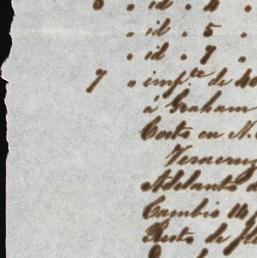 6 " id " 4 "
" id " 5 "
" id " 7 "
7 " imp.te de 40
á Graham
Costo en N.
Veracruz
Adelanto d
Cambio 14 p
Resto de fle